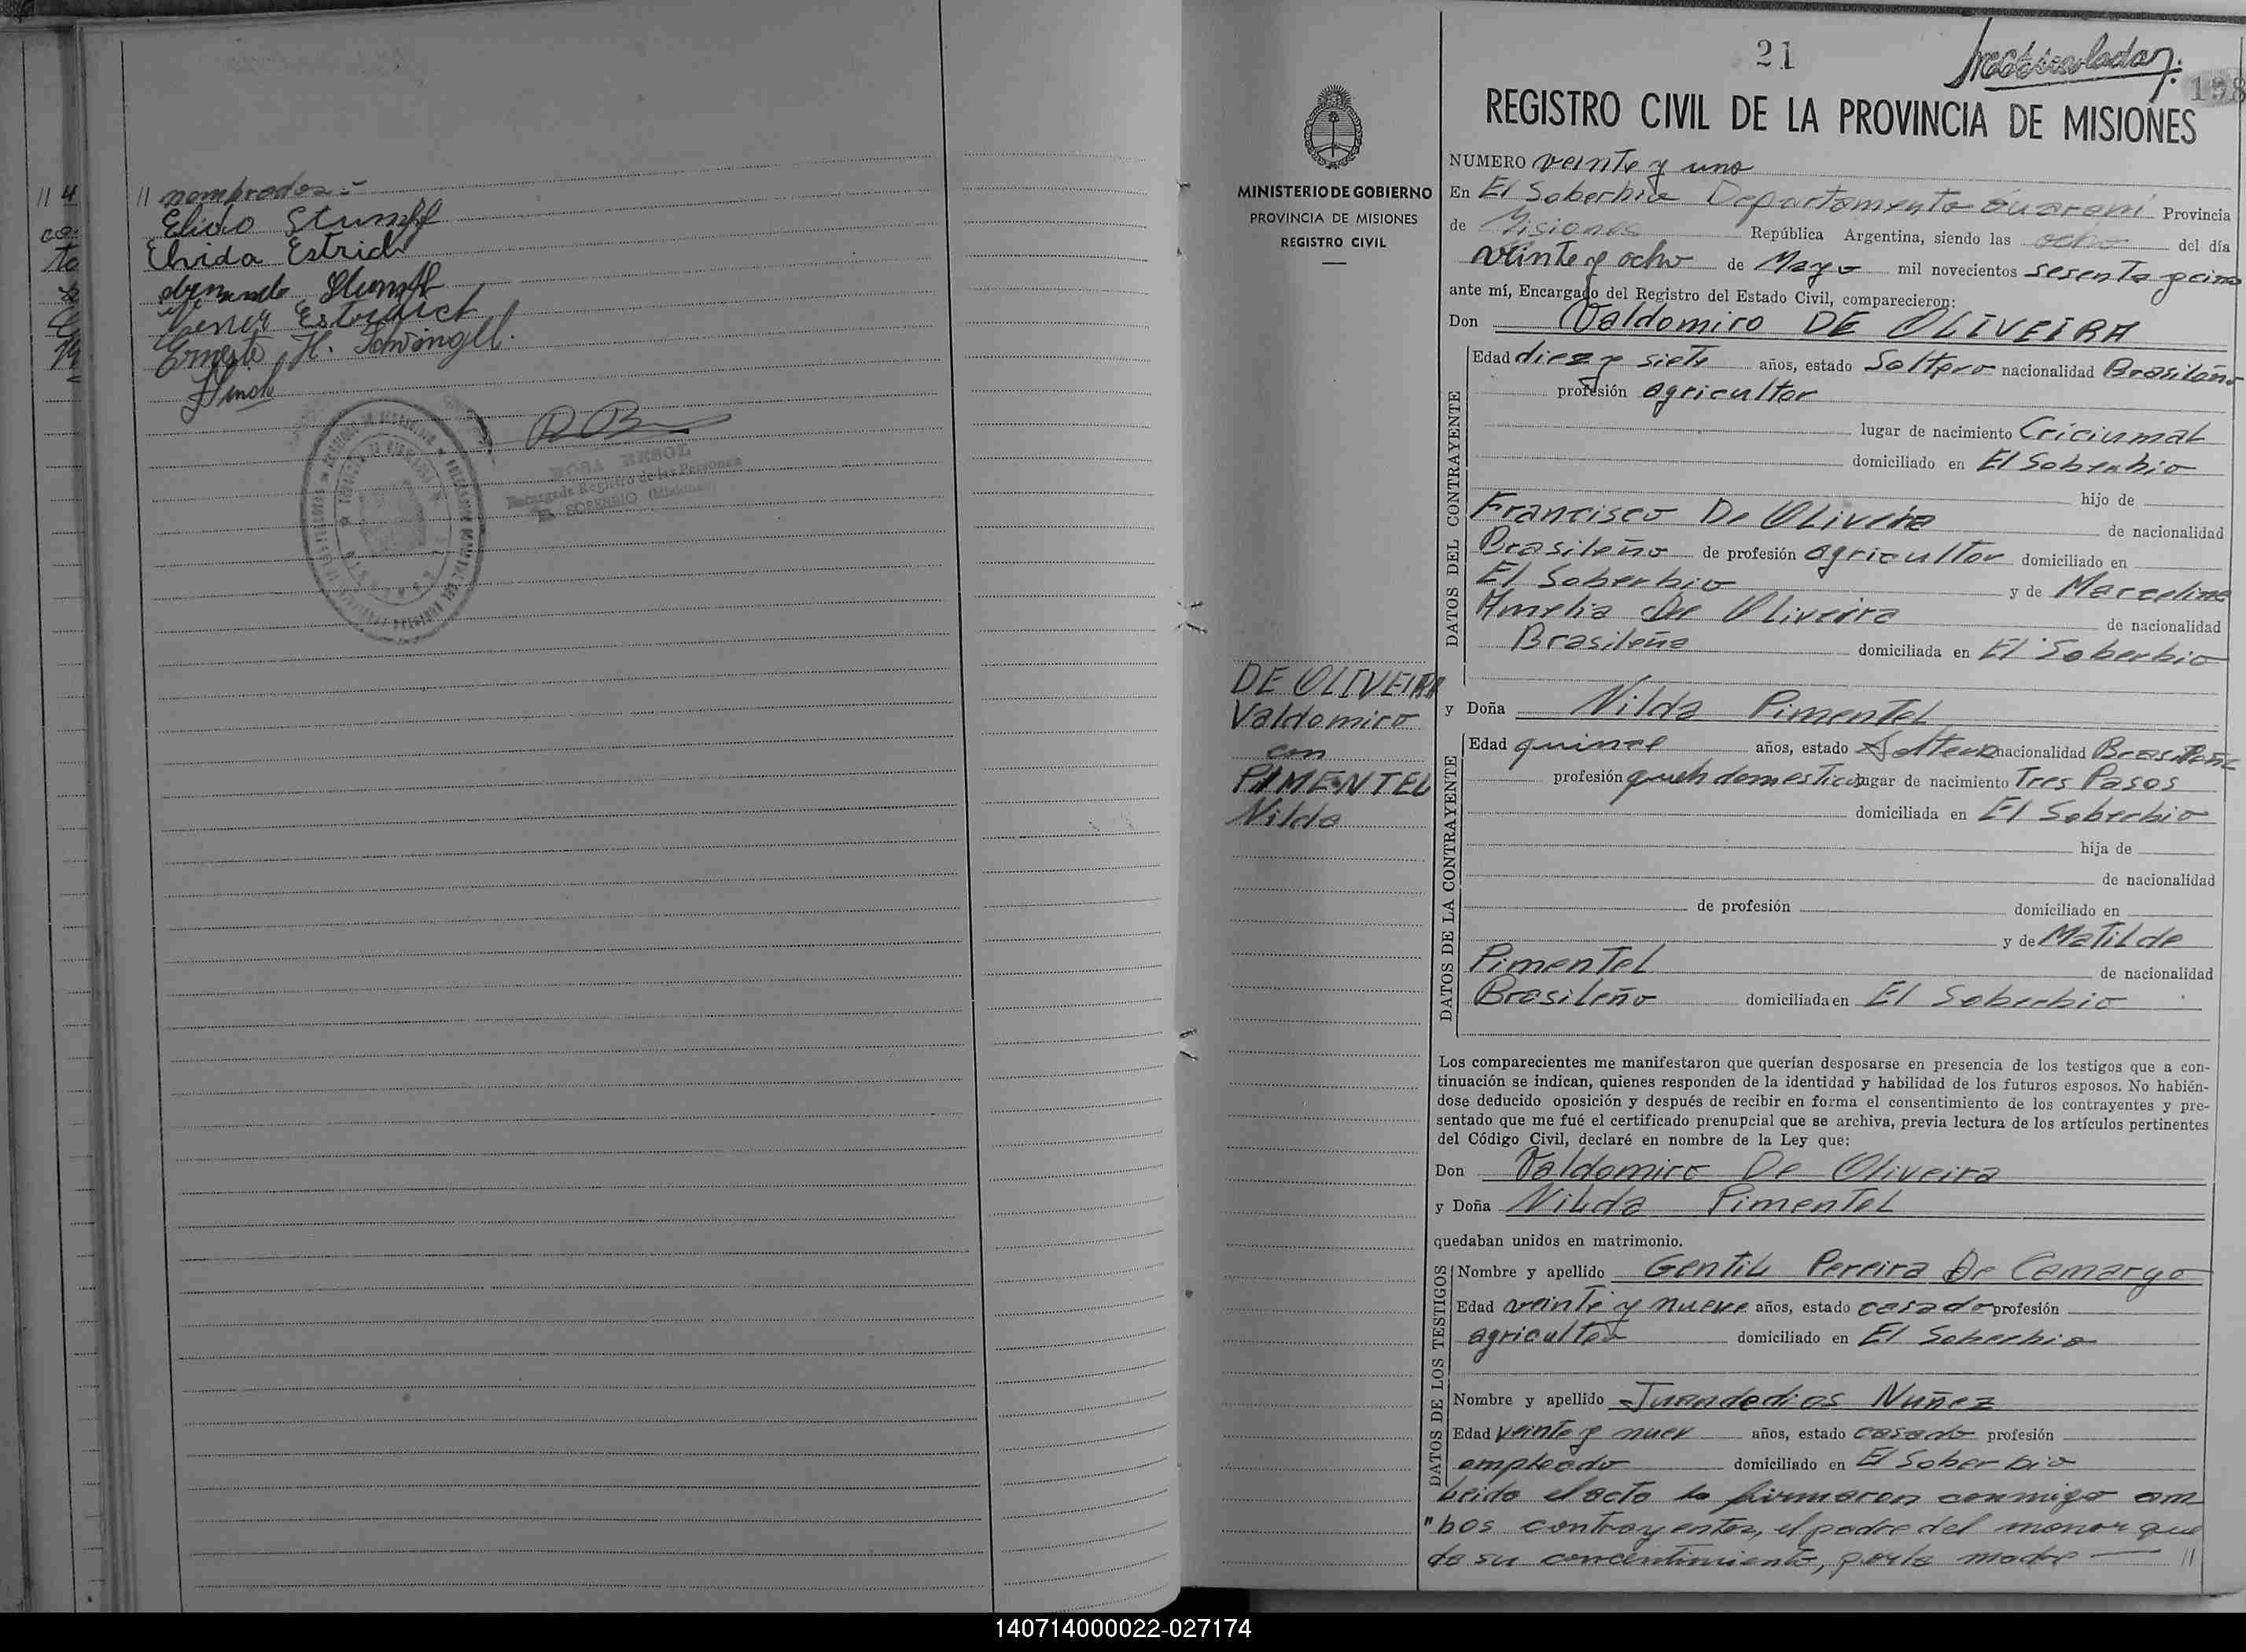 // nombrados.-
Elido Stumpf
Elvida Estrid
Stumpf
Ernesto H. Schwingel.
ROSA BESOL
Encargada Registro de las Personas
EL SOBERBIO (Misiones)
21
198
MINISTERIO DE GOBIERNO
PROVINCIA DE MISIONES
REGISTRO CIVIL
DE OLIVEIRA
Valdomiro
con
PIMENTEL
Nilda
REGISTRO CIVIL DE LA PROVINCIA DE MISIONES
NUMERO veinte y uno
En El Soberbio Departamento Guaraní Provincia
de Misiones República Argentina, siendo las ocho del día
veinte y ocho de Mayo mil novecientos sesenta y cinco
ante mí, Encargado del Registro del Estado Civil, comparecieron:
Don Valdomiro DE OLIVEIRA
DATOS DEL CONTRAYENTE
Edad diez y siete años, estado Soltero nacionalidad Brasileño
profesión agricultor
lugar de nacimiento Criciumal
domiciliado en El Soberbio
hijo de
Francisco De Oliveira de nacionalidad
Brasileño de profesión agricultor domiciliado en
El Soberbio y de Marcelina
Amelia De Oliveira de nacionalidad
Brasileña domiciliada en El Soberbio
y Doña Nilda Pimentel
DATOS DE LA CONTRAYENTE
Edad quince años, estado Soltera nacionalidad Brasileña
profesión queh domesticos lugar de nacimiento Tres Pasos
domiciliada en El Soberbio
hija de
de nacionalidad
de profesión domiciliado en
y de Matilde
Pimentel de nacionalidad
Brasileño domiciliada en El Soberbio
Los comparecientes me manifestaron que querían desposarse en presencia de los testigos que a con-
tinuación se indican, quienes responden de la identidad y habilidad de los futuros esposos. No habién-
dose deducido oposición y después de recibir en forma el consentimiento de los contrayentes y pre-
sentado que me fué el certificado prenupcial que se archiva, previa lectura de los artículos pertinentes
del Código Civil, declaré en nombre de la Ley que:
Don Valdomiro De Oliveira
y Doña Nilda Pimentel
quedaban unidos en matrimonio.
DATOS DE LOS TESTIGOS
Nombre y apellido Gentil Pereira De Camargo
Edad veinte y nueve años, estado casado profesión
agricultor domiciliado en El Soberbio
Nombre y apellido Juandedios Nuñez
Edad veinte y nuev años, estado casado profesión
empleado domiciliado en El Soberbio
Leido el acto la firmaron conmigo am
"bos contrayentes, el padre del menor que
da su concentimiento, por la madre — //
140714000022-027174